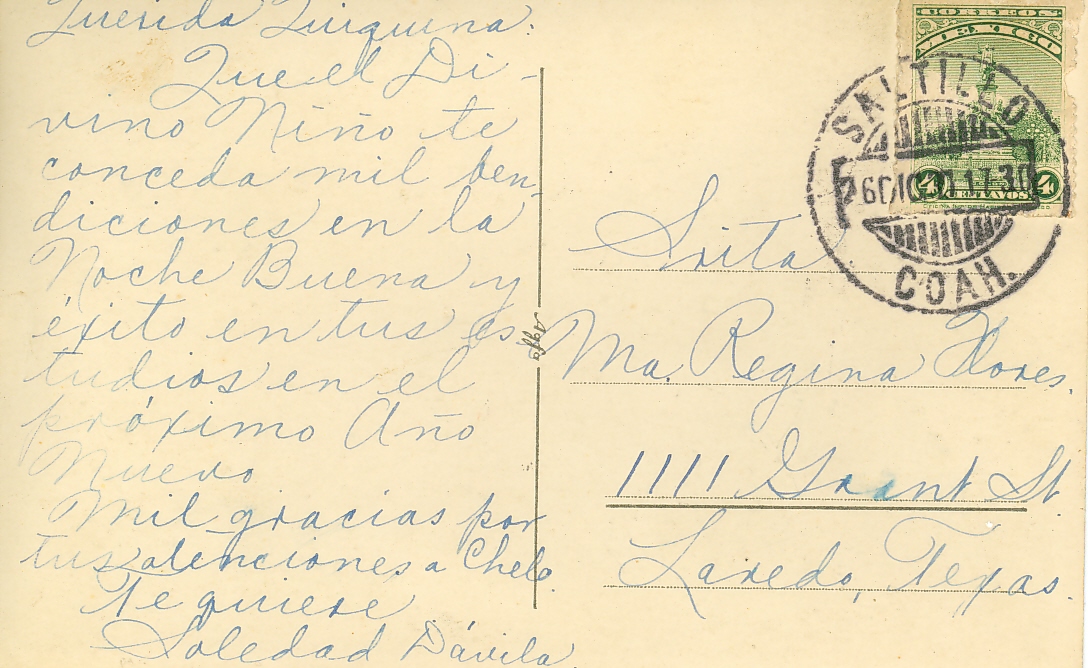 Querida Quiquina:
Que el Di-
vino Niño te
conceda mil ben-
diciones en la
Noche Buena y
éxito en tus es
tudios en el
próximo Año
Nuevo
Mil gracias por
tus atenciones a Chelo
Te quiere
Soledad Dávila
Agfa
CORREOS
CENTAVOS
4 4
SALTILLO
COAH.
Srita
Ma. Regina Flores.
1111 Grant St.
Laredo, Texas.